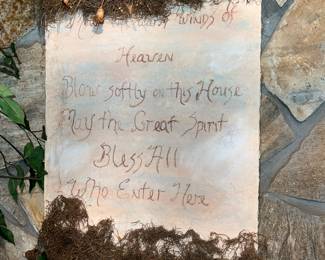 winds of
Heaven
Blow softly on this House
May the Great Spirit
Bless All
Who Enter Here